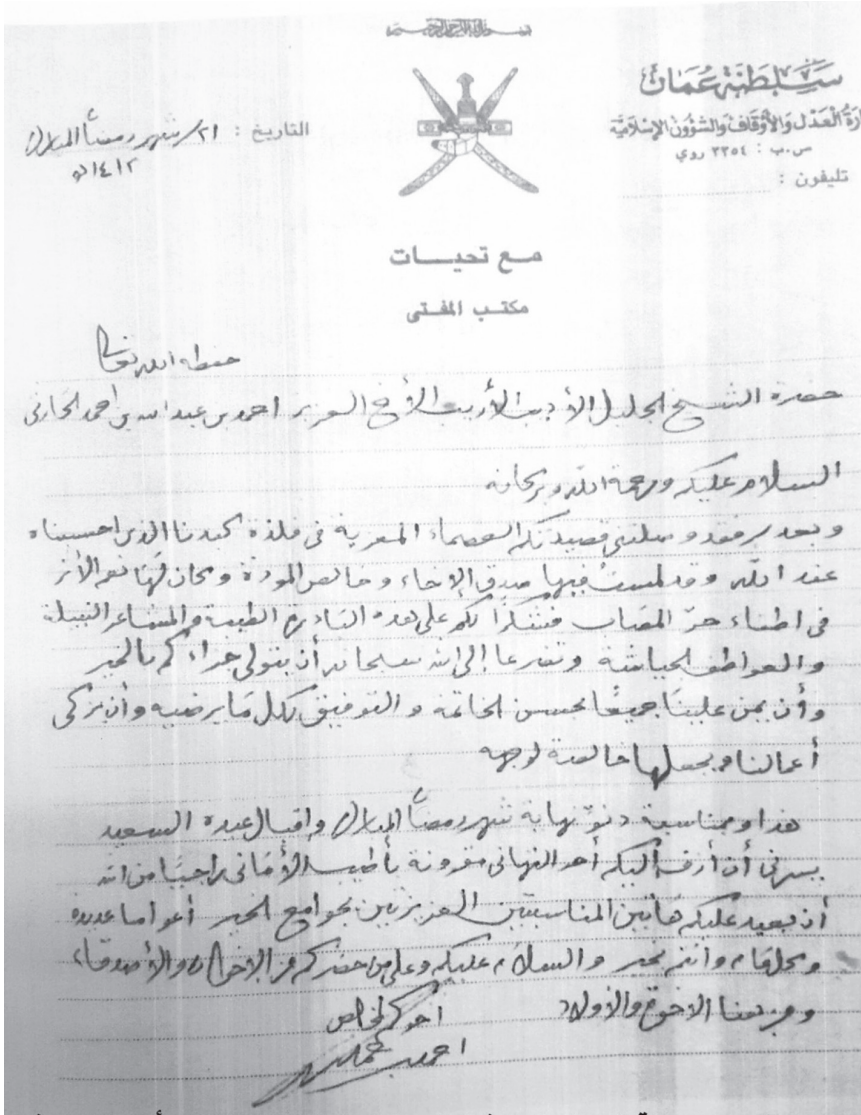 بسم الله الرحمن الرحيم
سلطنة عمان
ارة العدل والأوقاف والشؤون الإسلامية
ص.ب : ٣٣٥٤ روي
تليفون :
التاريخ : ٢١/شهر رمضان المبارك
١٤١٢هـ
مع تحيات
مكتب المفتي
حفظه الله تعالى
حضرة الشيخ الجليل الأديب الأريب الأخ العزيز احمد بن عبدالله بن احمد الحارثي
السلام عليكم ورحمة الله وبركاته
وبعد فقد وصلتني قصيدتكم العصماء المعزية في فلذة كبدنا الذي احتسبناه
عند الله وقد لمست فيها صدق الإخاء وخالص المودة وكان لها نعم الأثر
في اطفاء حرّ المصاب فشكرًا لكم على هذه البادرة الطيبة والمشاعر النبيلة
والعواطف الجياشة وتضرعا إلى الله سبحانه أن يتولى جزاءكم بالخير
وأن يمن علينا جميعًا بحسن الخاتمة والتوفيق لكل ما يرضيه وأن يزكي
أعمالنا ويجعلها خالصة لوجهه
هذا وبمناسبة دنوّ نهاية شهر رمضان المبارك وإقبال عيده السعيد
يسرني أن أزف إليكم أحر التهاني مقرونة بأطيب الأماني راجيًا من الله
أن يعيد عليكم هاتين المناسبتين العزيزتين بجوامع الخير أعواما عديدة
وأنتم بخير والسلام عليكم وعلى من حضركم من الإخوان والأصدقاء
ومن هنا الاخوة والأولاد
اخوكم المخلص
احمد بن حمد